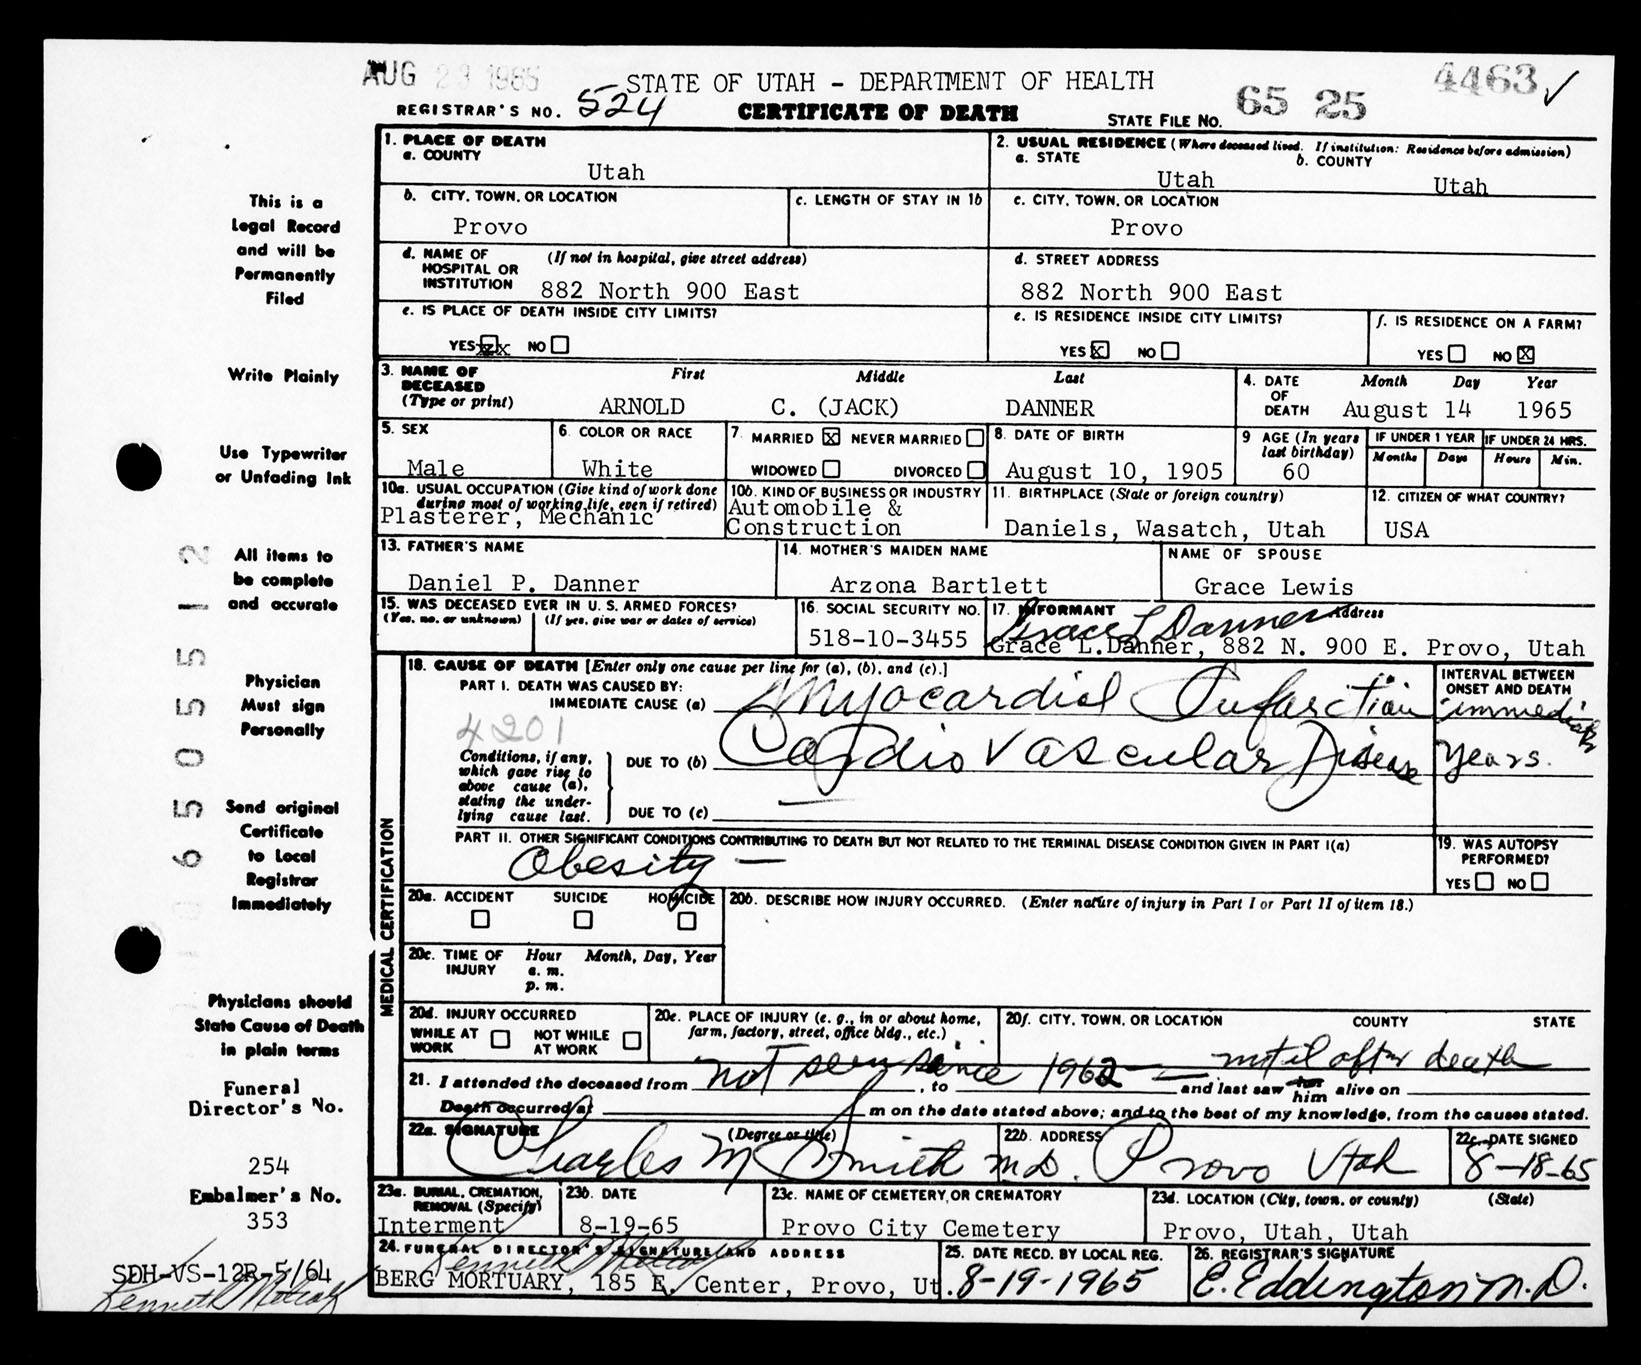 AUG 23 1965
STATE OF UTAH – DEPARTMENT OF HEALTH
4463 ✓
REGISTRAR'S NO. 524
CERTIFICATE OF DEATH
STATE FILE NO. 65 25
1. PLACE OF DEATH
a. COUNTY
Utah
2. USUAL RESIDENCE (Where deceased lived. If institution: Residence before admission)
a. STATE b. COUNTY
Utah Utah
b. CITY, TOWN, OR LOCATION
Provo
c. LENGTH OF STAY IN 1b
c. CITY, TOWN, OR LOCATION
Provo
d. NAME OF HOSPITAL OR INSTITUTION (If not in hospital, give street address)
882 North 900 East
d. STREET ADDRESS
882 North 900 East
e. IS PLACE OF DEATH INSIDE CITY LIMITS?
YES xx NO
e. IS RESIDENCE INSIDE CITY LIMITS?
YES X NO
f. IS RESIDENCE ON A FARM?
YES NO X
3. NAME OF DECEASED (Type or print)
First Middle Last
ARNOLD C. (JACK) DANNER
4. DATE OF DEATH
Month Day Year
August 14 1965
5. SEX
Male
6. COLOR OR RACE
White
7. MARRIED X NEVER MARRIED
WIDOWED DIVORCED
8. DATE OF BIRTH
August 10, 1905
9 AGE (In years last birthday)
60
IF UNDER 1 YEAR
Months Days
IF UNDER 24 HRS.
Hours Min.
10a. USUAL OCCUPATION (Give kind of work done during most of working life, even if retired)
Plasterer, Mechanic
10b. KIND OF BUSINESS OR INDUSTRY
Automobile &
Construction
11. BIRTHPLACE (State or foreign country)
Daniels, Wasatch, Utah
12. CITIZEN OF WHAT COUNTRY?
USA
13. FATHER'S NAME
Daniel P. Danner
14. MOTHER'S MAIDEN NAME
Arzona Bartlett
NAME OF SPOUSE
Grace Lewis
15. WAS DECEASED EVER IN U. S. ARMED FORCES?
(Yes, no, or unknown) (If yes, give war or dates of service)
16. SOCIAL SECURITY NO.
518-10-3455
17. INFORMANT Address
Grace L Danner
Grace L.Danner, 882 N. 900 E. Provo, Utah
MEDICAL CERTIFICATION
18. CAUSE OF DEATH [Enter only one cause per line for (a), (b), and (c).]
PART I. DEATH WAS CAUSED BY:
IMMEDIATE CAUSE (a) Myocardial Infarction
INTERVAL BETWEEN ONSET AND DEATH
immediate
4201
Conditions, if any, which gave rise to above cause (a), stating the underlying cause last.
DUE TO (b) Cardio Vascular Disease
Years.
DUE TO (c)
PART II. OTHER SIGNIFICANT CONDITIONS CONTRIBUTING TO DEATH BUT NOT RELATED TO THE TERMINAL DISEASE CONDITION GIVEN IN PART I(a)
Obesity —
19. WAS AUTOPSY PERFORMED?
YES NO
20a. ACCIDENT SUICIDE HOMICIDE
20b. DESCRIBE HOW INJURY OCCURRED. (Enter nature of injury in Part I or Part II of item 18.)
20c. TIME OF INJURY Hour Month, Day, Year
a. m.
p. m.
20d. INJURY OCCURRED
WHILE AT WORK NOT WHILE AT WORK
20e. PLACE OF INJURY (e. g., in or about home, farm, factory, street, office bldg., etc.)
20f. CITY, TOWN, OR LOCATION COUNTY STATE
21. I attended the deceased from not seen since, to 1962 — and last saw her him alive on until after death
Death occurred at m on the date stated above; and to the best of my knowledge, from the causes stated.
22a. SIGNATURE (Degree or title)
Charles M Smith M.D.
22b. ADDRESS
Provo Utah
22c. DATE SIGNED
8-18-65
23a. BURIAL, CREMATION, REMOVAL (Specify)
Interment
23b. DATE
8-19-65
23c. NAME OF CEMETERY OR CREMATORY
Provo City Cemetery
23d. LOCATION (City, town, or county) (State)
Provo, Utah, Utah
24. FUNERAL DIRECTOR'S SIGNATURE AND ADDRESS
Kenneth Metcalf
BERG MORTUARY, 185 E. Center, Provo, Ut.
25. DATE RECD. BY LOCAL REG.
8-19-1965
26. REGISTRAR'S SIGNATURE
E. Eddington M.D.
This is a
Legal Record
and will be
Permanently
Filed
Write Plainly
Use Typewriter
or Unfading Ink
All items to
be complete
and accurate
Physician
Must sign
Personally
Send original
Certificate
to Local
Registrar
Immediately
Physicians should
State Cause of Death
in plain terms
Funeral
Director's No.
254
Embalmer's No.
353
SDH-VS-12R-5/64
Kenneth Metcalf